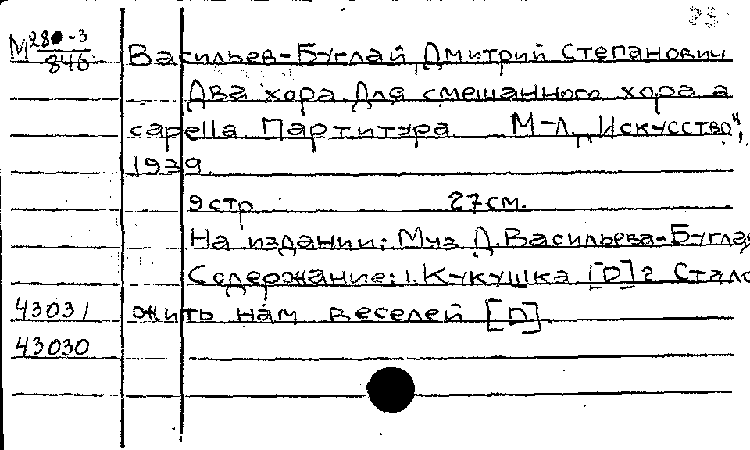 М 280-3 Васильев-Буглай Дмитрий Степанович
846
Два хора. Для смешанного хора а
capella. Партитура. М-Л, „Искусство",
1939.
9 стр. 27 см.
На издании: Муз. Д. Васильева-Буглая
Содержание: 1. Кукушка [D] 2. Стало
43031 жить нам веселей [D].
43030